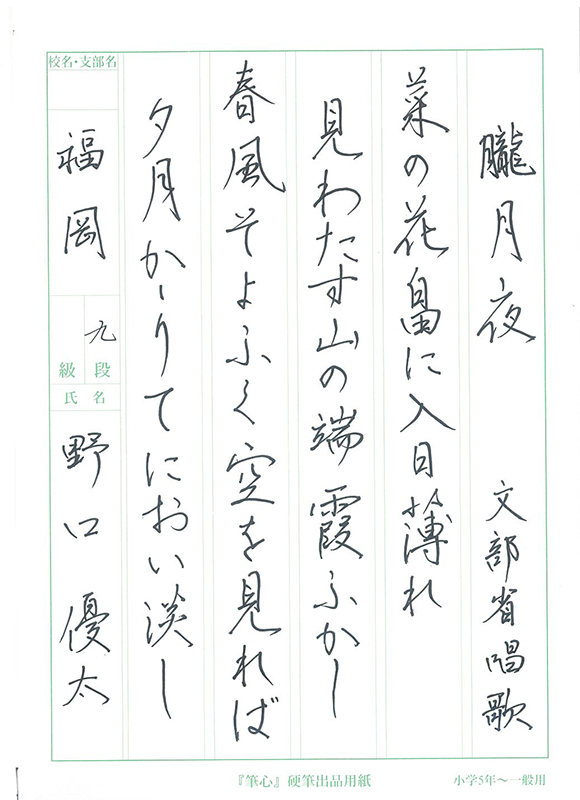 朧月夜　文部省唱歌
菜の花畠に入日薄れ
見わたす山の端霞ふかし
春風そよふく空を見れば
夕月かゝりてにおい淡し
校名・支部名
福岡
九
段
級
氏名
野口優太
『筆心』硬筆出品用紙
小学5年～一般用